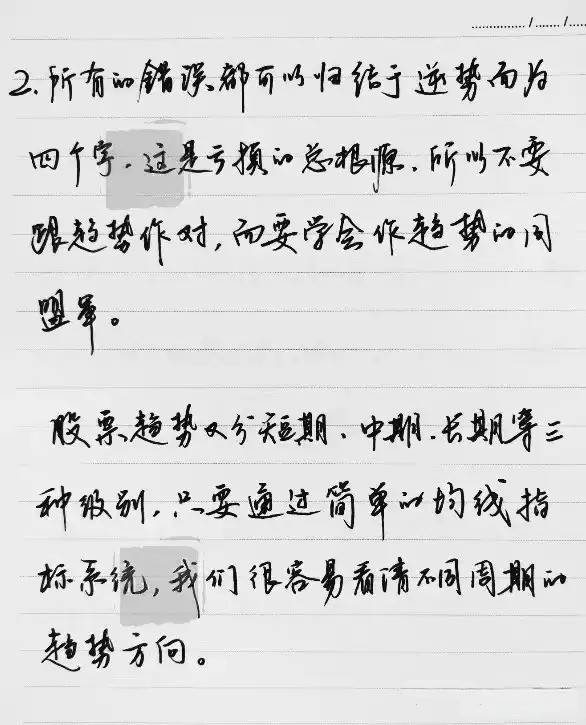 2.所有的错误都可以归结于逆势而为
四个字.这是亏损的总根源.所以不要
跟趋势作对,而要学会作趋势的同
盟军。
股票趋势又分短期、中期.长期等三
种级别,只要通过简单的均线指
标系统,我们很容易看清不同周期的
趋势方向。